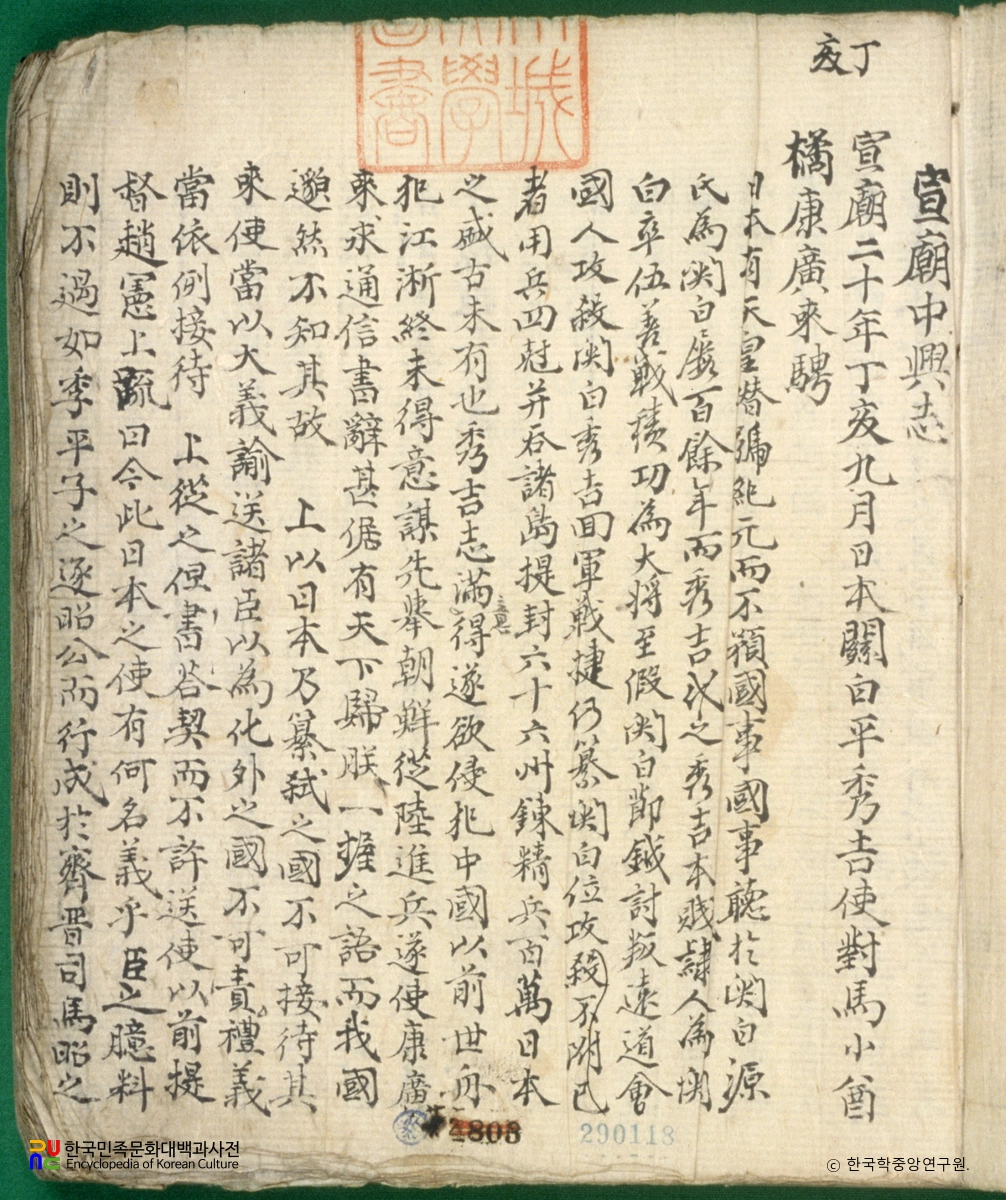 丁亥
宣廟中興志
宣廟二十年丁亥九月日本關白平秀吉使對馬小酋
橘康廣來騁
日本有天皇僣號紀元而不頪國事國事聽於関白源
氏為関白屡百餘年而秀吉代之秀吉本賎隷人為関
白卒伍善戦積功為大將至假関白節鉞討叛遠道會
國人攻殺関白秀吉囬軍戦捷仍簒関白位攻殺不附己
者用兵四尅并呑諸島提封六十六州錬精兵百萬日本
之盛古未有也秀吉志滿得遂欲侵犯中國以前世舟
犯江淅終未得意謀先犖朝鮮從陸進兵遂使康廣
來求通信書辭甚倨有天下歸朕一握之語而我國
邈然不知其故 上以日本乃簒弑之國不可接待其
來使當以大義諭送諸臣以為化外之國不可責禮義
當依例接待 上從之但書答契而不許送使以前提
督趙憲上疏曰今此日本之使有何名義乎臣之臆料
則不過如季平子之逐昭公而行成於齊晋司馬昭之
4808
290118
한국민족문화대백과사전
Encyclopedia of Korean Culture
© 한국학중앙연구원.